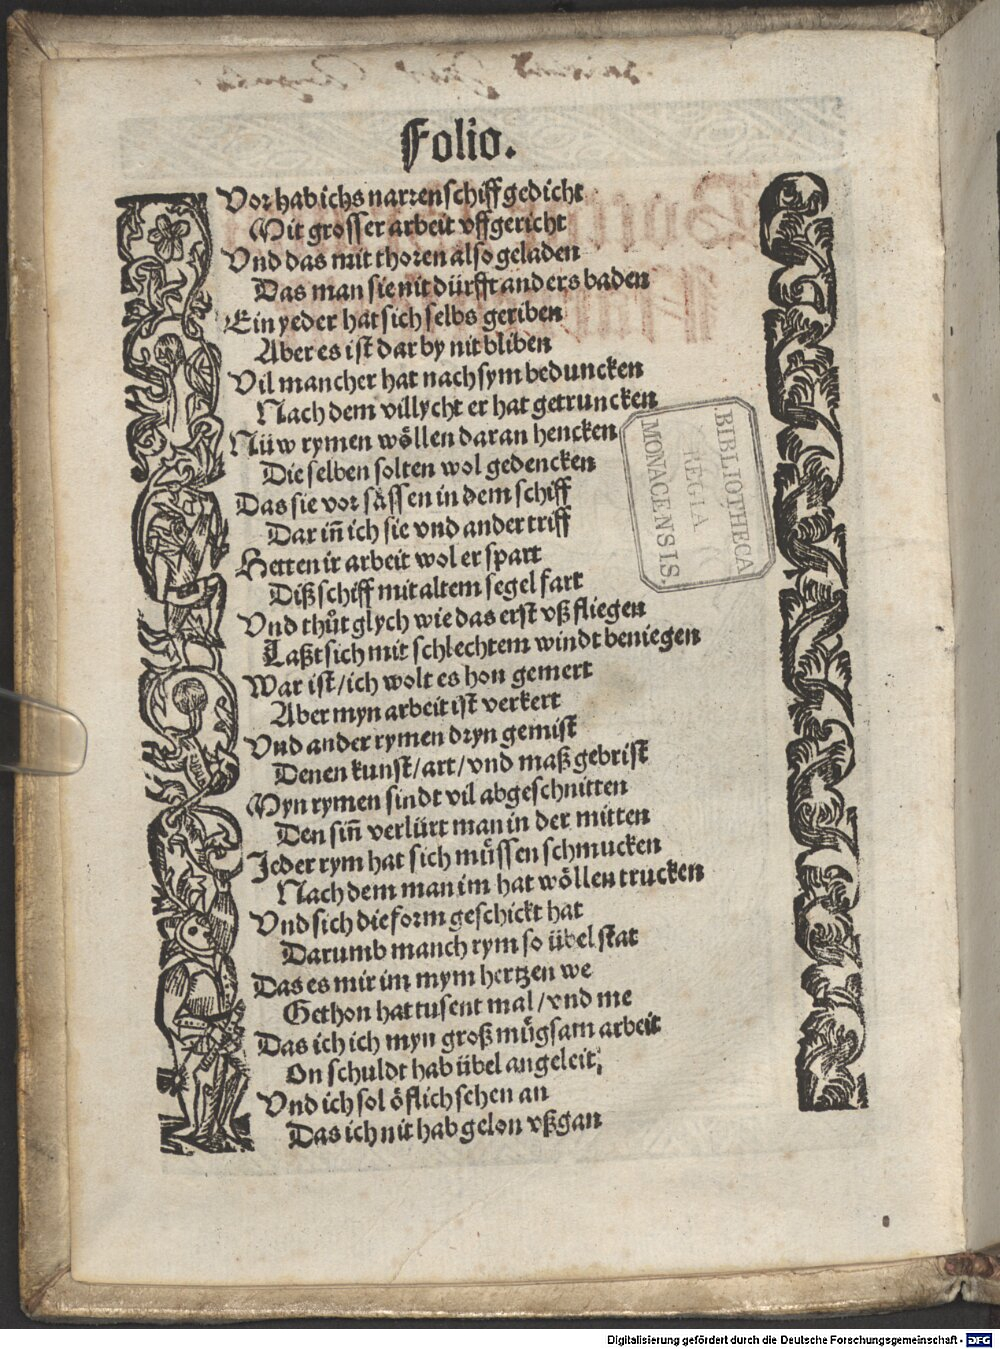 Folio.
Vor hab ichs narrenschiff gedicht
Mit grosser arbeit vffgericht
Vnd das mit thoren also geladen
Das man sie nit dürfft anders baden
Ein yeder hat sich selbs geriben
Aber es ist dar by nit bliben
Vil mancher hat nach sym beduncken
Nach dem villycht er hat getruncken
Nüw rymen wöllen daran hencken
Die selben solten wol gedencken
Das sie vor sässen in dem schiff
Dar in̄ ich sie vnd ander triff
Hetten ir arbeit wol erspart
Diß schiff mit altem segel fart
Vnd thůt glych wie das erst vß fliegen
Laßt sich mit schlechtem windt beniegen
War ist/ ich wolt es hon gemert
Aber myn arbeit ist verkert
Vnd ander rymen dryn gemist
Denen kunst/ art/ vnd maß gebrist
Myn rymen sindt vil abgeschnitten
Den sin̄ verlürt man in der mitten
Jeder rym hat sich müssen schmucken
Nach dem man im hat wöllen trucken
Vnd sich die form geschickt hat
Darumb manch rym so übel stat
Das es mir im mym hertzen we
Gethon hat tusent mal/ vnd me
Das ich ich myn groß mügsam arbeit
On schuldt hab übel angeleit;
Vnd ich sol öflich sehen an
Das ich nit hab gelon vßgan
BIBLIOTHECA
REGIA
MONACENSIS.
Digitalisierung gefördert durch die Deutsche Forschungsgemeinschaft - DFG